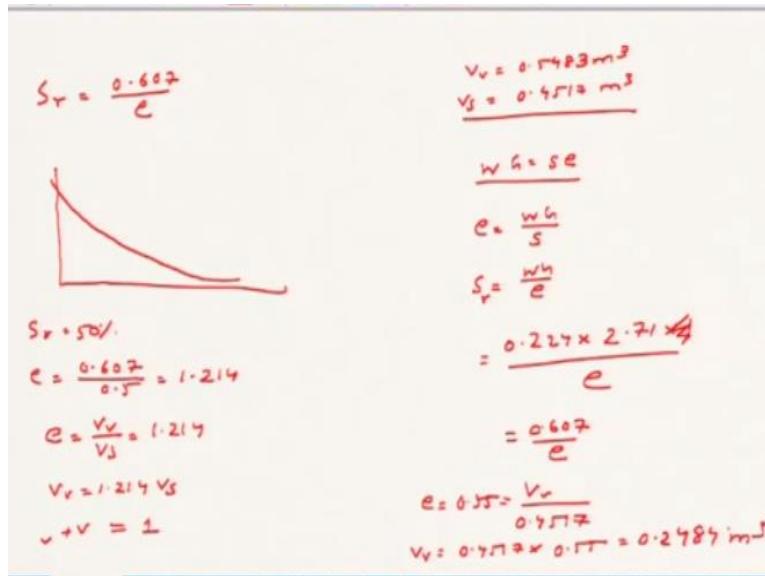 Sr = 0.607 / e
Sr = 50%.
e = 0.607 / 0.5 = 1.214
e = Vv / Vs = 1.214
Vv = 1.214 Vs
v + v = 1
Vv = 0.5483 m³
Vs = 0.4517 m³
wG = se
e = wG / s
Sr = wG / e
= 0.224 × 2.71 / e
= 0.607 / e
e = 0.55 = Vv / 0.4517
Vv = 0.4517 × 0.55 = 0.2484 m³